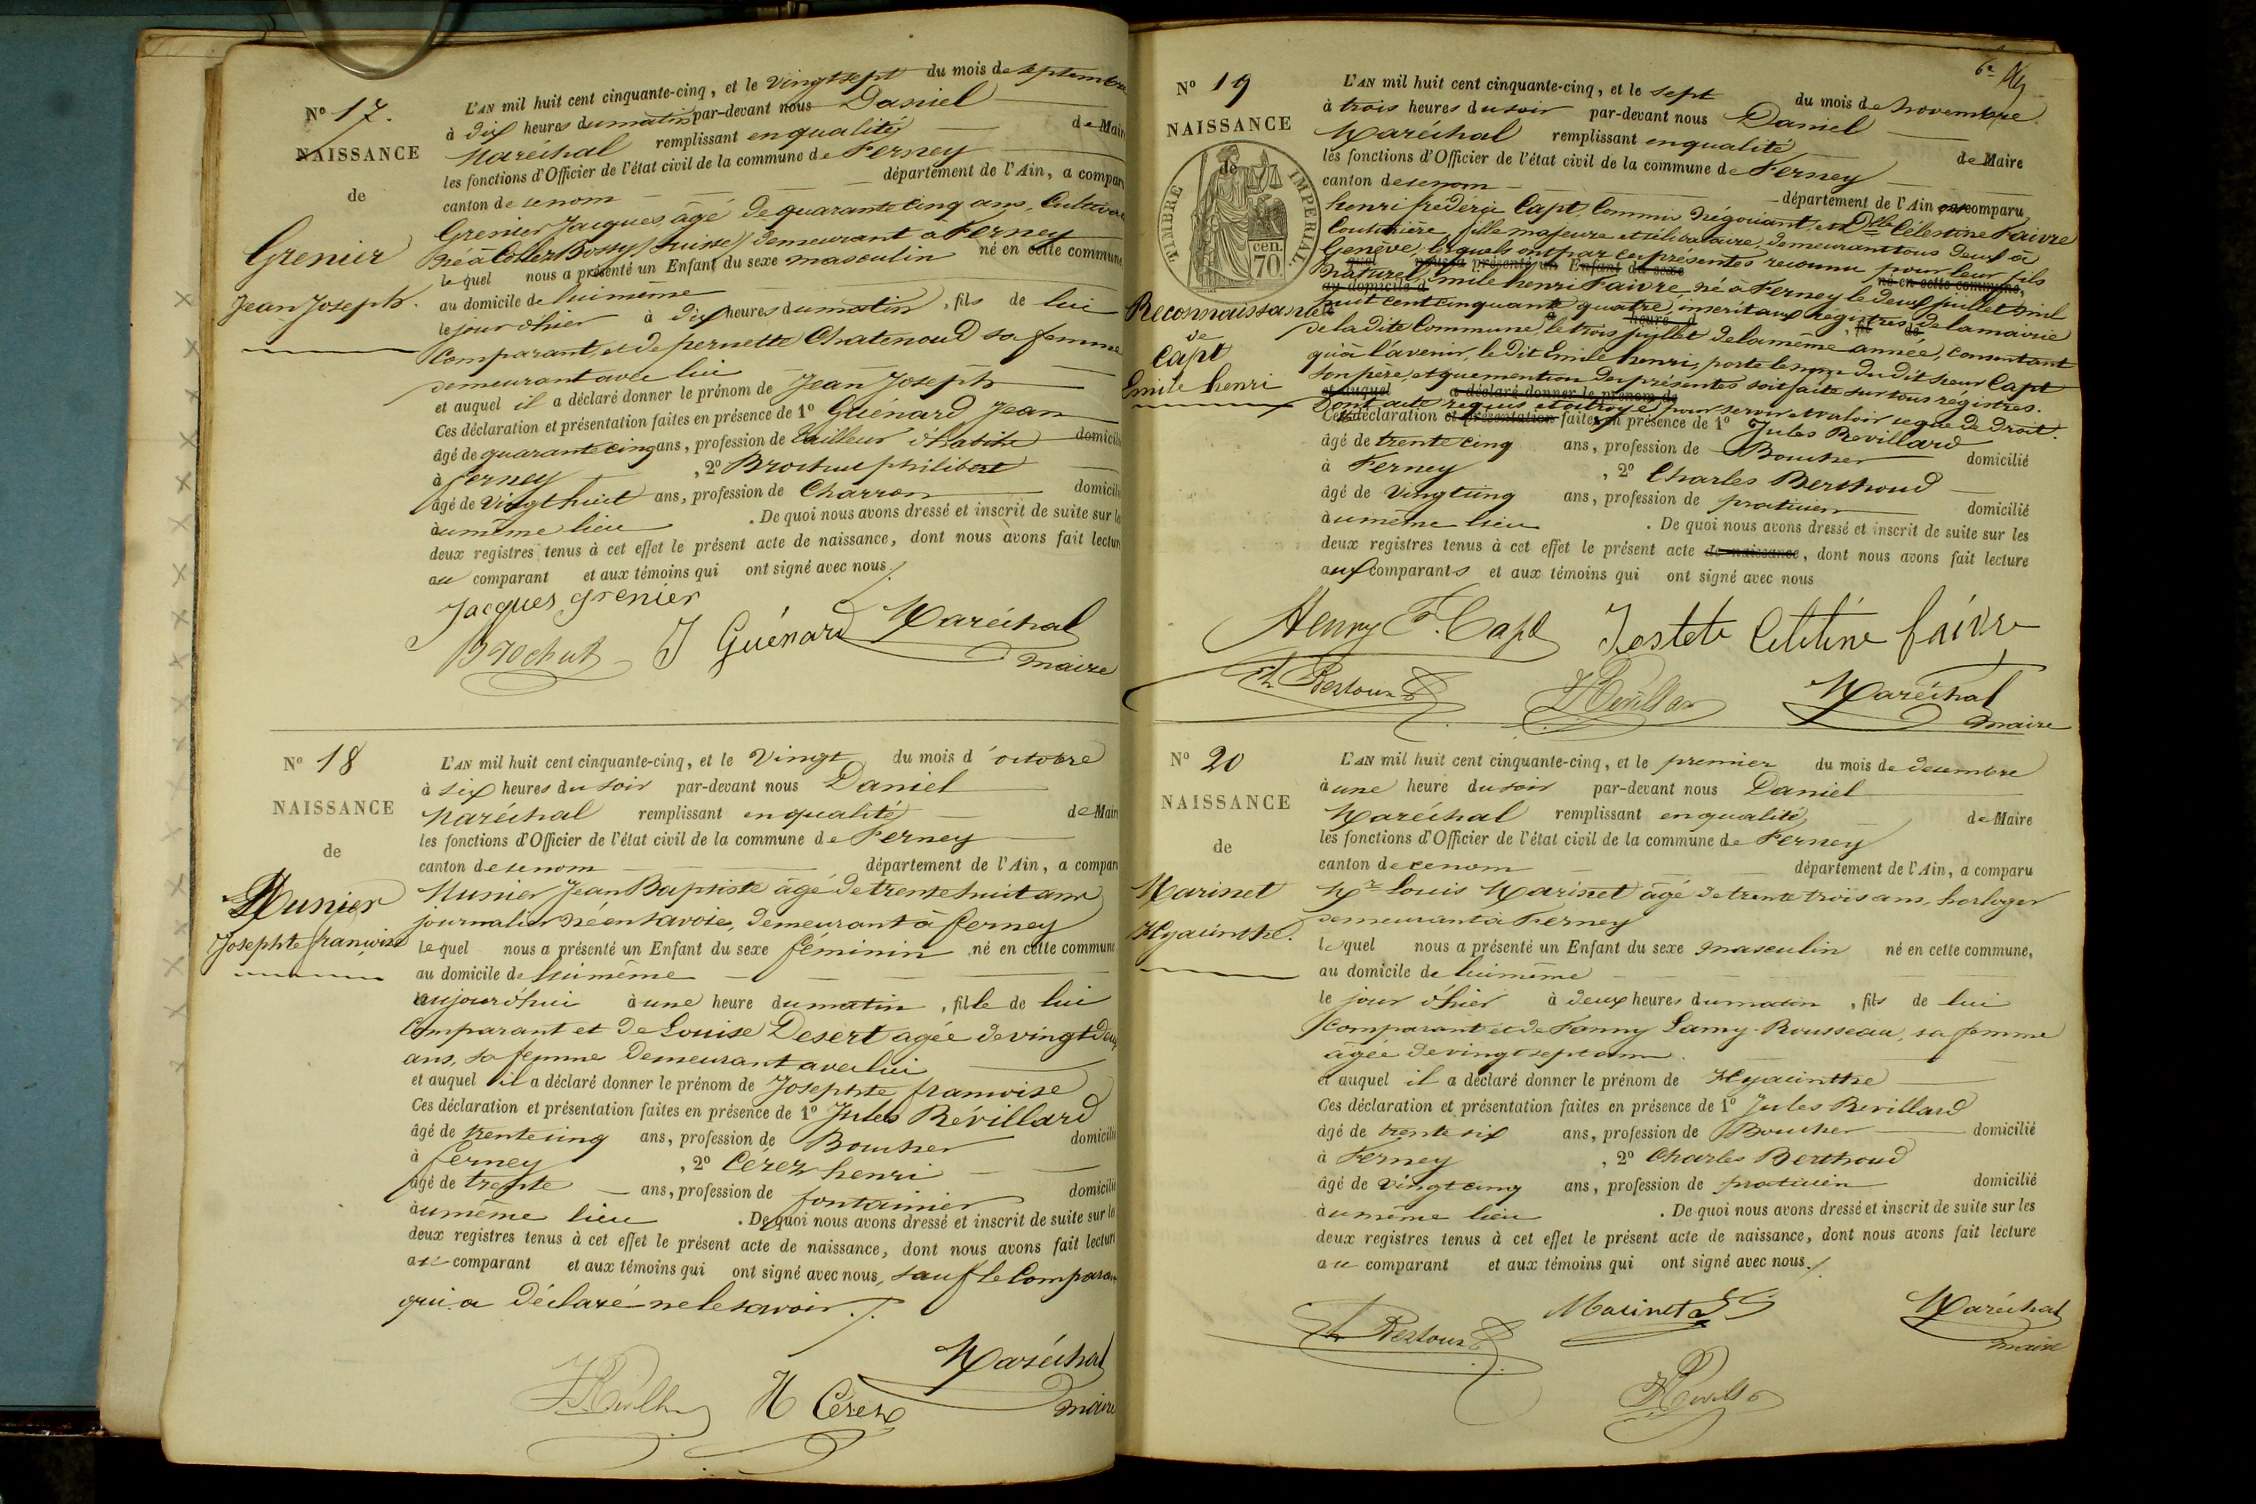 N° 17.
NAISSANCE
de
Grenier
Jean Joseph.
L'AN mil huit cent cinquante-cinq, et le Vingt sept du mois de septembre
à dix heures du matin par-devant nous Daniel
Maréchal remplissant en qualité de Maire
les fonctions d'Officier de l'état civil de la commune de Ferney
canton de ce nom département de l'Ain, a comparu
Grenier Jacques, âgé de quarante cinq ans, Cultivateur
né à Collex Bossy (Suisse) demeurant à Ferney
lequel nous a présenté un Enfant du sexe masculin né en cette commune
au domicile de lui même
le jour d'hier à dix heures du matin, fils de lui
Comparant, et de pernette Chatenoud sa femme
demeurant avec lui
et auquel il a déclaré donner le prénom de Jean Joseph
Ces déclaration et présentation faites en présence de 1° Guénard Jean
âgé de quarante cinq ans, profession de tailleur d'habits domicilié
à ferney, 2° Brochut philibert
âgé de Vingt huit ans, profession de Charron domicilié
au même lieu. De quoi nous avons dressé et inscrit de suite sur les
deux registres tenus à cet effet le présent acte de naissance, dont nous avons fait lecture
au comparant et aux témoins qui ont signé avec nous.
Jacques Grenier
Brochut J Guénard Maréchal
maire
N° 18
NAISSANCE
de
Munier
Josephte françoise
L'AN mil huit cent cinquante-cinq, et le Vingt du mois d'octobre
à six heures du soir par-devant nous Daniel
Maréchal remplissant en qualité de Maire
les fonctions d'Officier de l'état civil de la commune de Ferney
canton de ce nom département de l'Ain, a comparu
Munier Jean Baptiste âgé de trente huit ans
journalier né en Savoie, demeurant à ferney
lequel nous a présenté un Enfant du sexe féminin né en cette commune
au domicile de lui même
aujourd'hui à une heure du matin, fille de lui
Comparant et de Louise Desert agée de vingt deux
ans, sa femme demeurant avec lui
et auquel il a déclaré donner le prénom de Josephte francoise
Ces déclaration et présentation faites en présence de 1° Jules Révillard
âgé de trente cinq ans, profession de Boucher domicilié
à ferney, 2° Cérez henri
âgé de trente ans, profession de fontainier domicilié
au même lieu. De quoi nous avons dressé et inscrit de suite sur les
deux registres tenus à cet effet le présent acte de naissance, dont nous avons fait lecture
au comparant et aux témoins qui ont signé avec nous, sauf le Comparant
qui a déclaré ne le savoir.
Maréchal
H Cérez maire
6e
N° 19
NAISSANCE
de
TIMBRE IMPERIAL.
70 cen.
Reconnaissance
de
Capt
Emile henri
L'AN mil huit cent cinquante-cinq, et le sept du mois de novembre
à trois heures du soir par-devant nous Daniel
Maréchal remplissant en qualité de Maire
les fonctions d'Officier de l'état civil de la commune de Ferney
canton de ce nom département de l'Ain ont comparu
henri fréderic Capt, Commis négociant, et Dlle Célestine Faivre
Couturière, fille majeure et célibataire, demeurant tous deux à
Genève, lesquels ont par ces présentes reconnu pour leur fils
quel nous a présenté un Enfant du sexe né en cette commune,
naturel, Emile henri Faivre né à Ferney le deux juillet mil
au domicile d
huit cent cinquante quatre, inscrit aux registres de la mairie
à heure d, fil de
de la dite Commune, le trois juillet de la même année, Consentant
qu'à l'avenir, le dit Emile henri, porte le nom du dit sieur Capt
son père, et que mention des présentes soit faite sur tous registres.
et auquel a déclaré donner le prénom de
Dont acte requis et octroyé pour servir et valoir ce que de droit.
Cette déclaration et présentation faite en présence de 1° Jules Revillard
âgé de trente cinq ans, profession de Boucher domicilié
à Ferney, 2° Charles Berthoud
âgé de Vingt cinq ans, profession de praticien domicilié
au même lieu. De quoi nous avons dressé et inscrit de suite sur les
deux registres tenus à cet effet le présent acte de naissance, dont nous avons fait lecture
aux comparants et aux témoins qui ont signé avec nous
Henry F. Capt Céléstine faivre
Maréchal
maire
N° 20
NAISSANCE
de
Marinet
Hyacinthe.
L'AN mil huit cent cinquante-cinq, et le premier du mois de decembre
à une heure du soir par-devant nous Daniel
Maréchal remplissant en qualité de Maire
les fonctions d'Officier de l'état civil de la commune de Ferney
canton de ce nom département de l'Ain, a comparu
Mr Louis Marinet âgé de trente trois ans, horloger
demeurant à Ferney
lequel nous a présenté un Enfant du sexe masculin né en cette commune,
au domicile de lui même
le jour d'hier à deux heures du matin, fils de lui
Comparant et de Fanny Lamy-Rousseau, sa femme
âgée de vingt sept ans
et auquel il a déclaré donner le prénom de Hyacinthe
Ces déclaration et présentation faites en présence de 1° Jules Revillard
âgé de trente six ans, profession de Boucher domicilié
à Ferney, 2° Charles Berthoud
âgé de Vingt cinq ans, profession de praticien domicilié
au même lieu. De quoi nous avons dressé et inscrit de suite sur les
deux registres tenus à cet effet le présent acte de naissance, dont nous avons fait lecture
au comparant et aux témoins qui ont signé avec nous.
Marinet Maréchal
maire